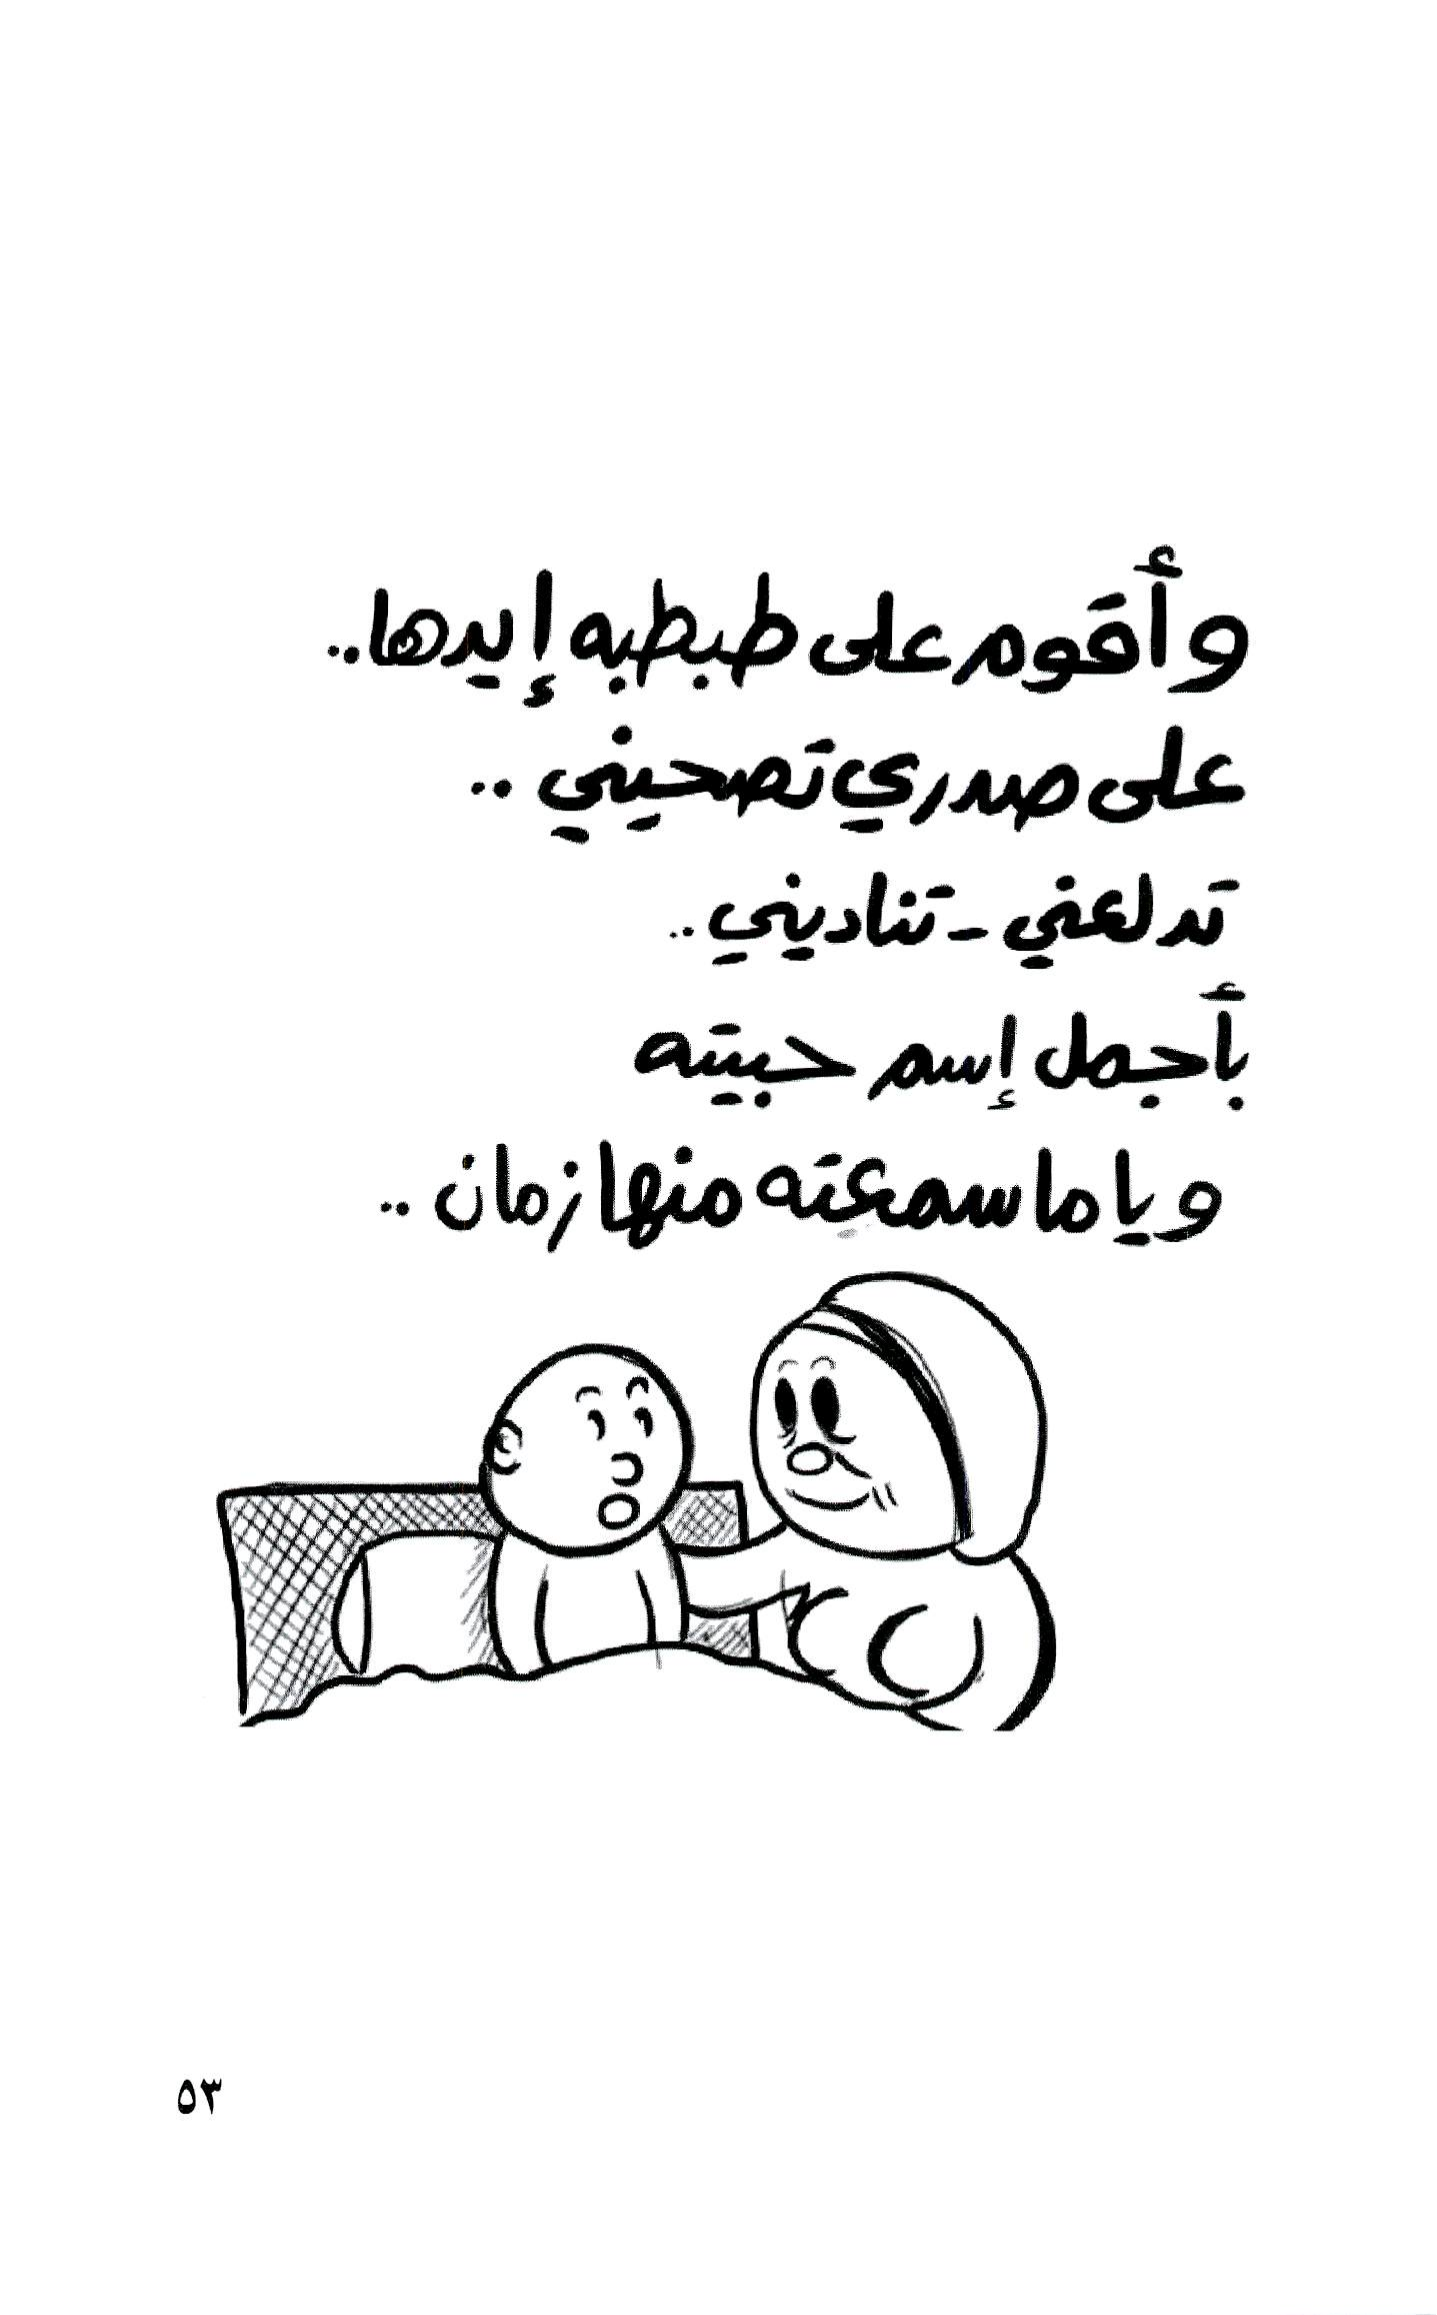 وأقوم على طبطبه إيدها..
على صدري تصحيني ..
تدلعني - تناديني ..
بأجمل إسم حبيته
وياما سمعته منها زمان ..
٥٣